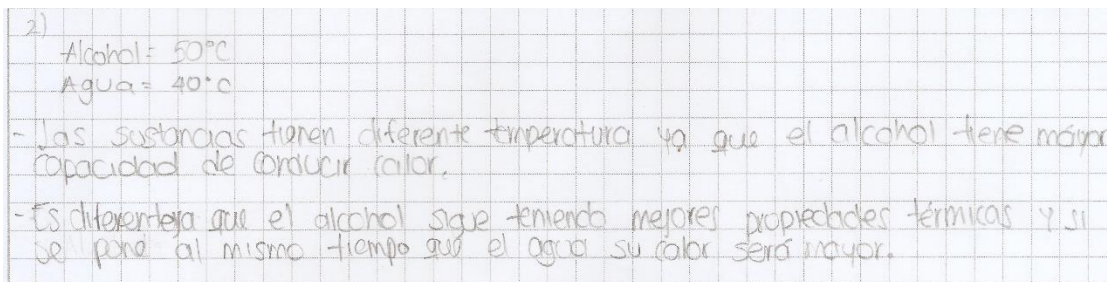 2)
Alcohol= 50°C
Agua= 40°C
- Las sustancias tienen diferente temperatura ya que el alcohol tiene mayor
capacidad de conducir calor.
- Es diferente ya que el alcohol sigue teniendo mejores propiedades térmicas y si
se pone al mismo tiempo que el agua su calor será mayor.